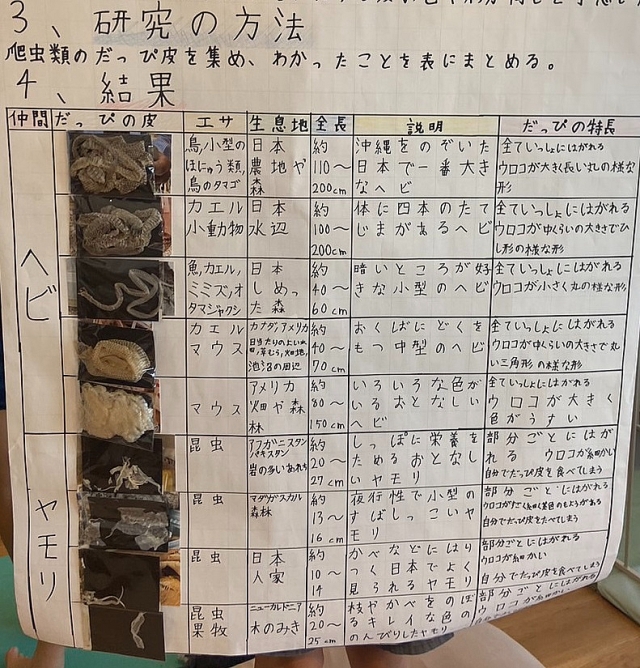 3、研究の方法
爬虫類のだっぴ皮を集め、わかったことを表にまとめる。
4、結果
仲間 だっぴの皮 エサ 生息地 全長 説明 だっぴの特長
ヘビ
鳥,小型の
ほにゅう類,
鳥のタマゴ
日本
農地や
森
約
110〜
200cm
沖縄をのぞいた
日本で一番大き
なヘビ
全ていっしょにはがれる
ウロコが大きく長い丸の様な
形
カエル
小動物
日本
水辺
約
100〜
200cm
体に四本のたて
じまがあるヘビ
全ていっしょにはがれる
ウロコが中くらいの大きさでひ
し形の様な形
魚,カエル,
ミミズ,オ
タマジャクシ
日本
しめっ
た森
約
40〜
60cm
暗いところが好
きな小型のヘビ
全ていっしょにはがれる
ウロコが小さく丸の様な形,
カエル
マウス
カナダ,アメリカ
池,沼の周辺
約
40〜
70cm
おくばにどくを
もつ中型のヘビ
全ていっしょにはがれる
ウロコが中くらいの大きさで丸
い三角形の様な形
マウス
アメリカ
畑や森
林
約
80〜
150cm
いろいろな色が
いるおとなしい
ヘビ
全ていっしょにはがれる
ウロコが大きく
色がうすい
ヤモリ
昆虫
アフガニスタン
パキスタン
岩の多いあれち
約
20〜
27cm
しっぽに栄養を
ためるおとなし
いヤモリ
部分ごとにはが
れる ウロコが細かい
自分でだっぴ皮を食べてしまう
昆虫
マダガスカル
森林
約
13〜
16cm
夜行性で小型の
すばしっこいヤ
モリ
部分ごとにはがれる
自分でだっぴ皮をたべてしまう
昆虫
日本
人家
約
10〜
14
かべなどにはり
つく日本でよく
見られるヤモリ
部分ごとにはがれる
ウロコが細かい
自分でだっぴ皮を食べてしまう
昆虫
果牧
ニューカレドニア
木のみき
約
20〜
25cm
枝やかべをのぼ
るキレイな色の
のんびりしたヤモリ
部分ごとにはがれる
ウロコが細かい,